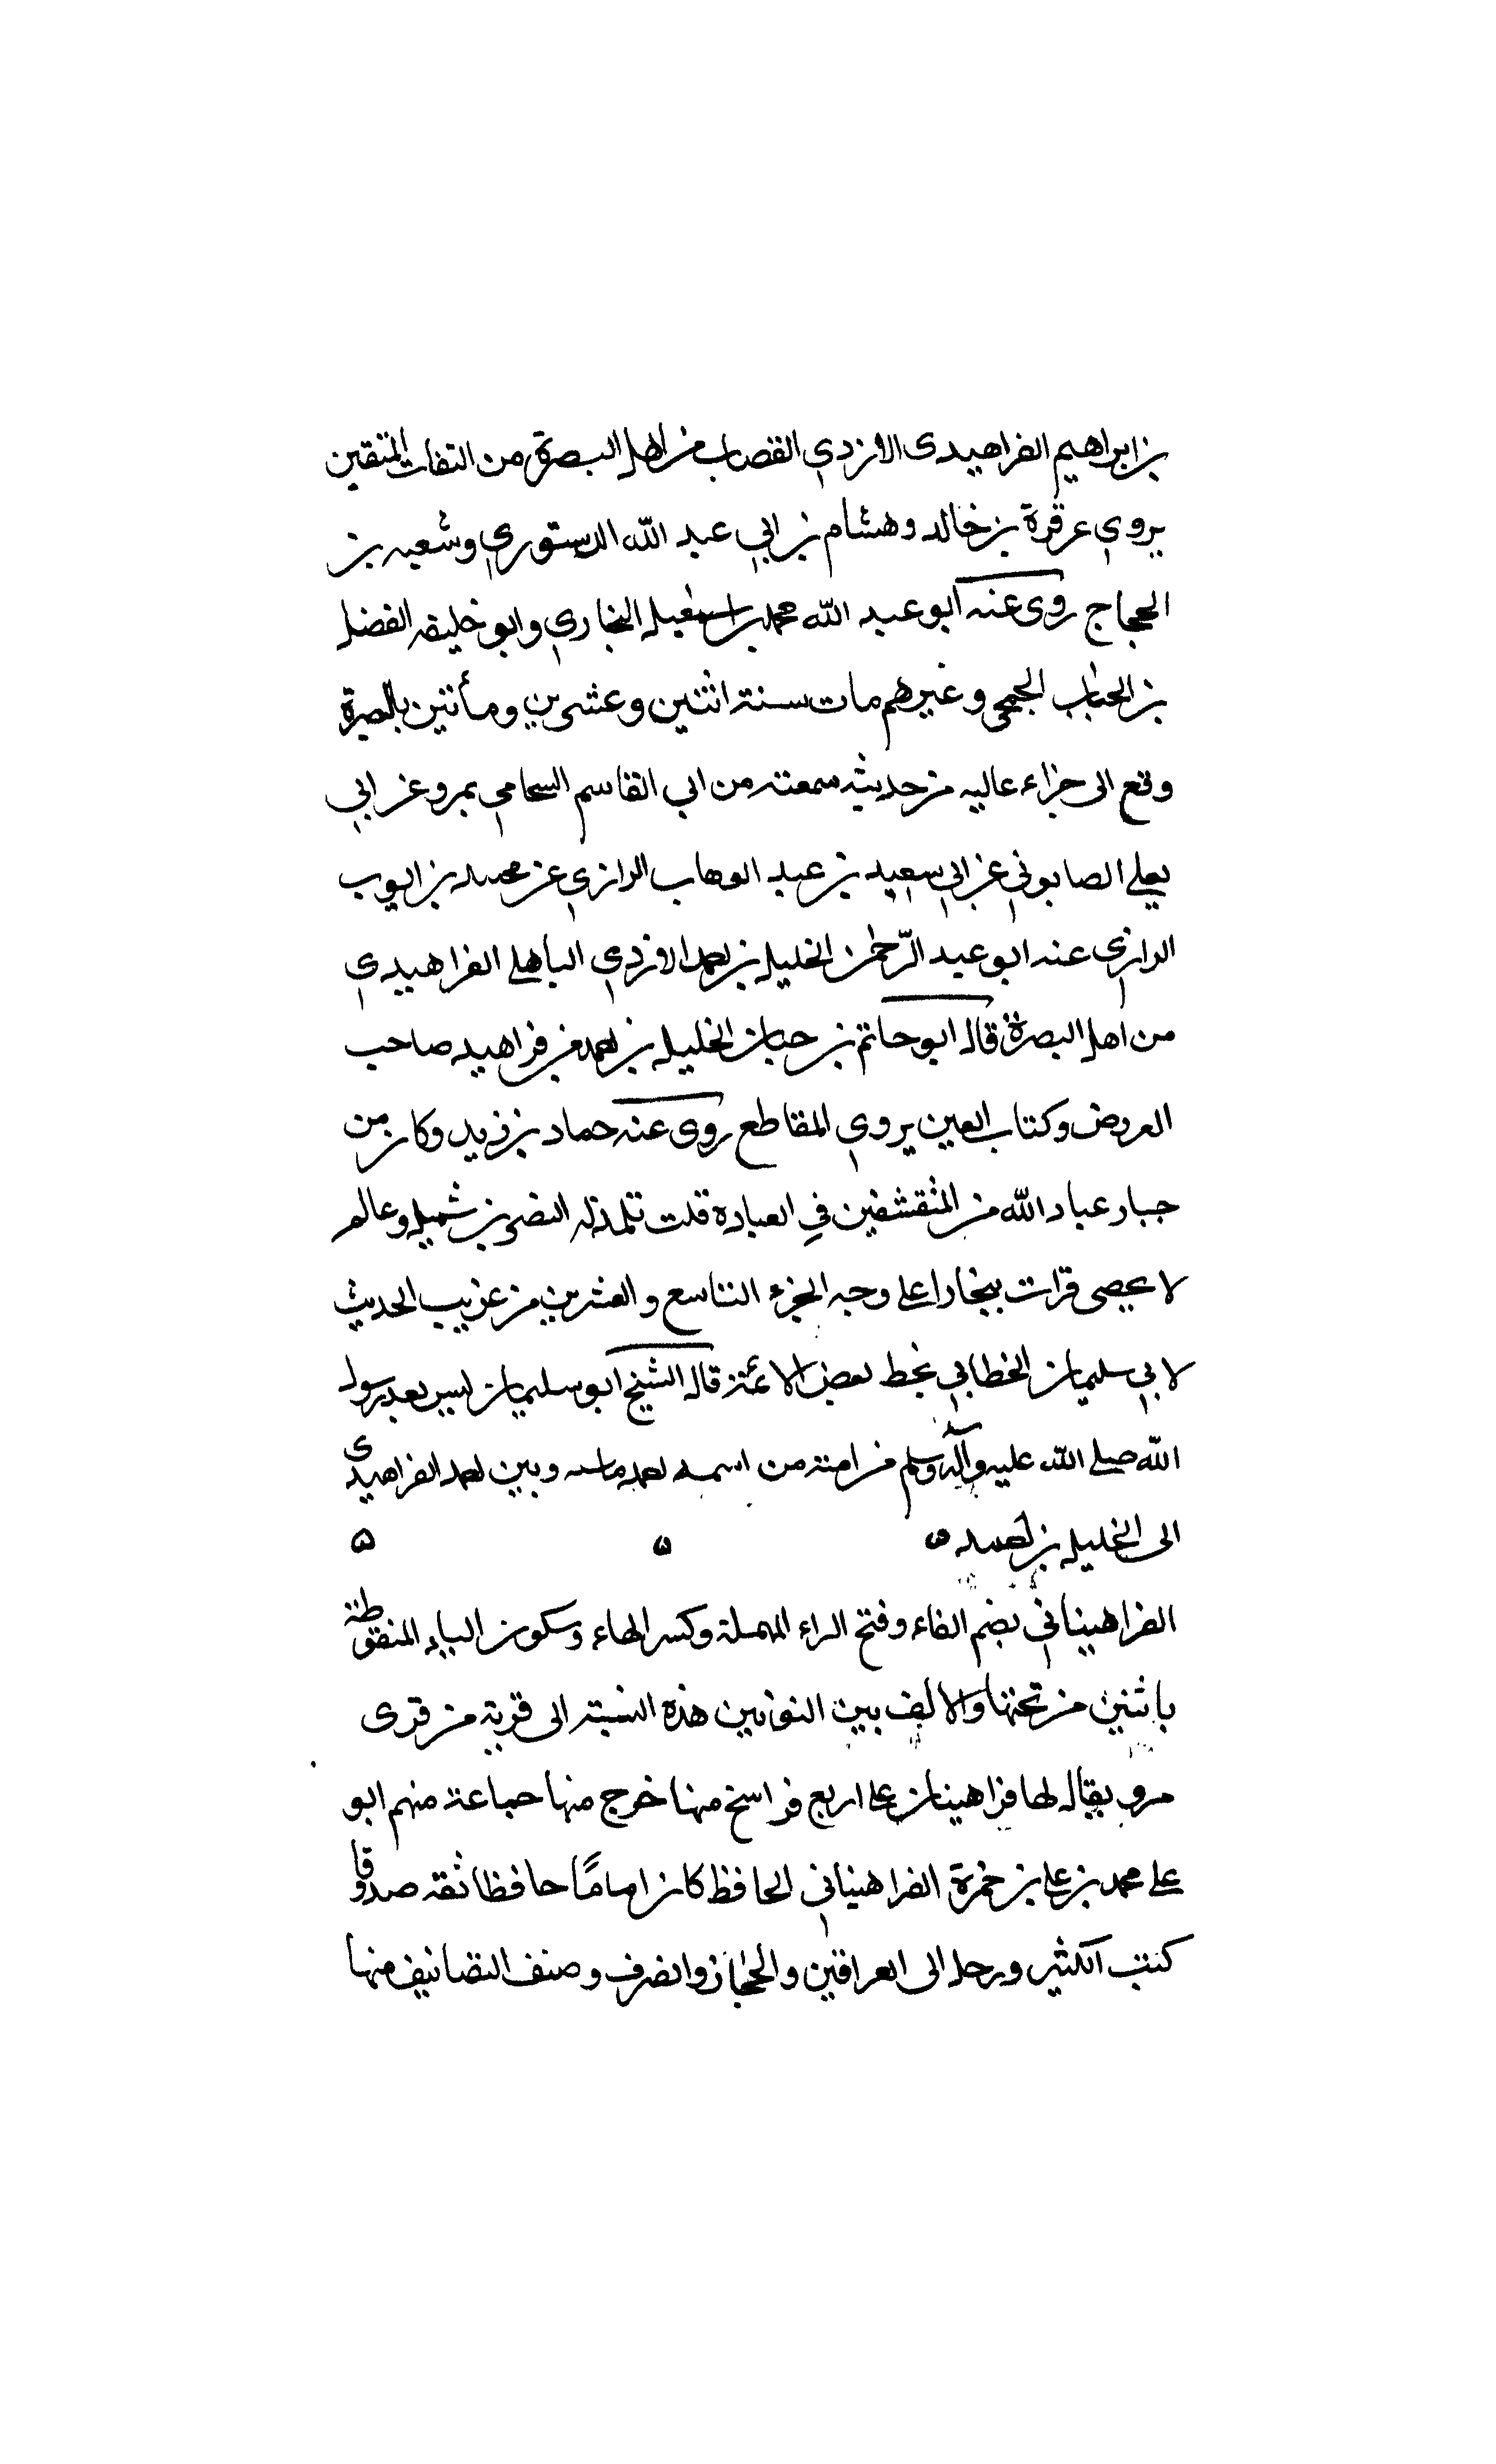 بن ابراهيم الفراهيدى الازدي القصاب من اهل البصرة من الثقات المتقين
يروي عن قرة بن خالد وهشام بن ابي عبد الله الدستوري وشعبه بن
الحجاج روى عنه ابو عبد الله محمد بن اسمعيل البخاري وابو خليفه الفضل
بن الحباب الجمحي وغيرهم مات سنة اثنين وعشرين ومأتين بالبصرة
وقع الى جزاء عاليه من حديثه سمعته من ابي القاسم السحامي بمرو عن ابي
يعلي الصابوني عن ابي سعيد بن عبد الوهاب الرازي عن محمد بن ايوب
الرازي عنه ابو عبد الرّحمن الخليل بن احمد الازدي الباهلي الفراهيدي
من اهل البصرة قال ابو حاتم بن حبان الخليل بن احمد من فراهيد صاحب
العروض وكتاب العين يروي المقاطع روى عنه حماد بن زيد وكان من
خيار عباد الله من المتقشفين في العباده قلت تلمذ له النضر بن شميل وعالم
لا يحصى قرات ببخارا على وجه الجزء التاسع والعشرين من غريب الحديث
لابي سليمان الخطابي بخط بعض الائمة قال الشيخ ابو سليمان ليس بعد رسول
الله صلى الله عليه وآله وسلم من امته من اسمه احمد وبين احمد الفراهيدى
الى الخليل بن احمد ه ه ه
الفراهيناني بضم الفاء وفتح الراء المهملة وكسر الهاء وسكون الياء المنقوطة
باثنين من تحتها والالف بين النونين هذه النسبة الى قرية من قرى
مرو يقال لها فراهينان على اربع فراسخ منها خرج منها جماعة منهم ابو
علي محمد بن علي بن حمزة الفراهيناني الحافظ كان امامًا حافظا ثقه صدوقا
كتب الكثير ورحل الى العراقين والحجاز وانصرف وصنف التصانيف منها